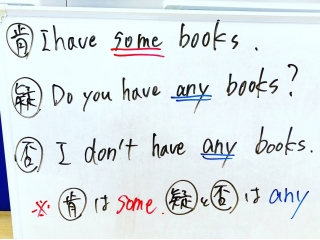 肯 I have some books.
疑 Do you have any books?
否 I don't have any books.
※ 肯はsome. 疑と否はany